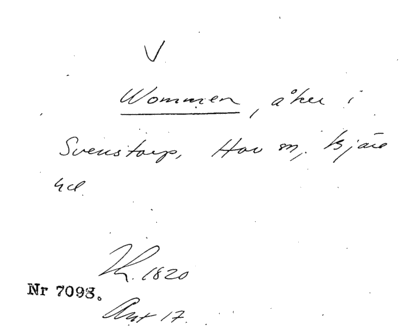 V
Wommen, åker i
Svenstorp, Hov sn, Bjäre
hd
Th. 1820
Nr 7098.
Ant 17.